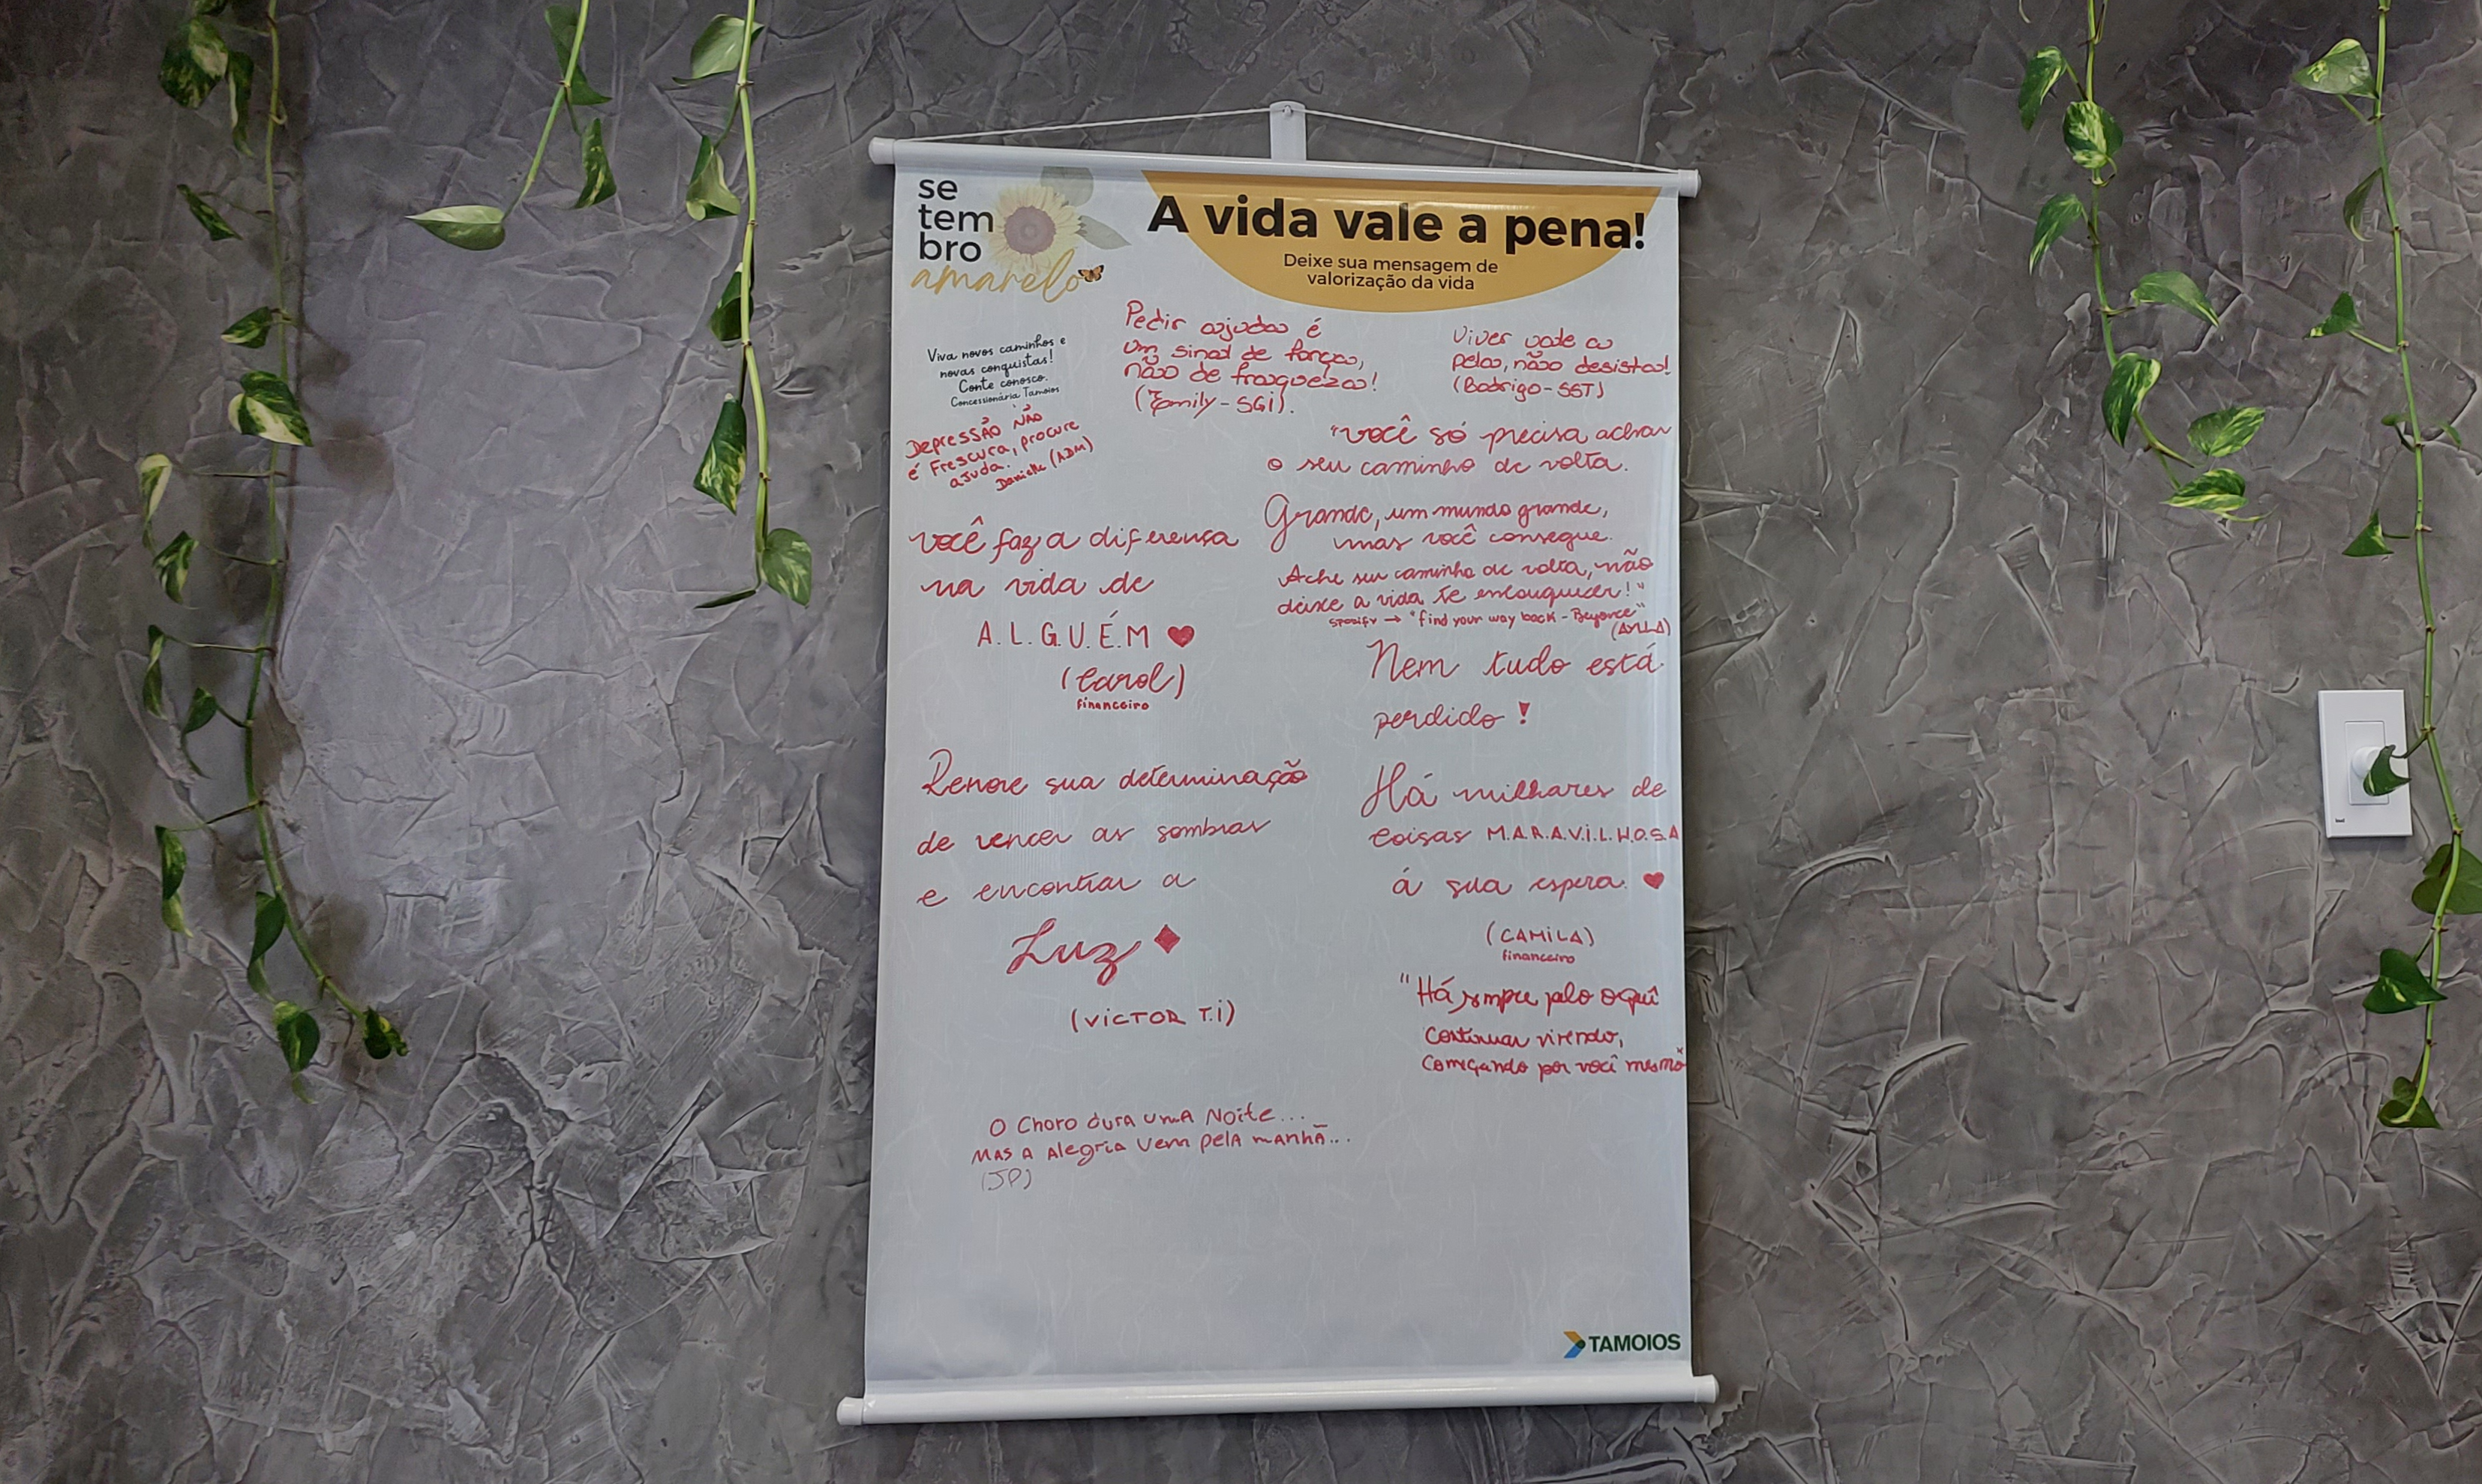 se
tem
bro
amarelo
A vida vale a pena!
Deixe sua mensagem de
valorização da vida
Viva novos caminhos e
novas conquistas!
Conte conosco.
Concessionária Tamoios
Pedir ajuda é
um sinal de força,
não de fraqueza!
(Emily-SGI).
Viver vale a
pela, não desista!
(Rodrigo-SST)
Depressão não
é frescura, procure
ajuda.
Danielle (ADM)
"você só precisa achar
o seu caminho de volta.
Grande, um mundo grande,
mas você consegue.
Ache seu caminho de volta, não
deixe a vida te enlouquecer!"
spotify → "find your way back - Beyonce"
(AYLLA)
você faz a diferença
na vida de
A.L.G.U.É.M ♥
(Carol)
financeiro
Nem tudo está
perdido!
Renove sua determinação
de vencer as sombras
e encontrar a
Luz ♦
(VICTOR T.I)
Há milhares de
coisas M.A.R.A.V.I.L.H.O.S.A
á sua espera. ♥
(CAMILA)
financeiro
"Há sempre pelo
Continuar vivendo,
Começando por você mesmo"
O Choro dura uma Noite...
Mas a Alegria vem pela manhã...
(JP)
TAMOIOS